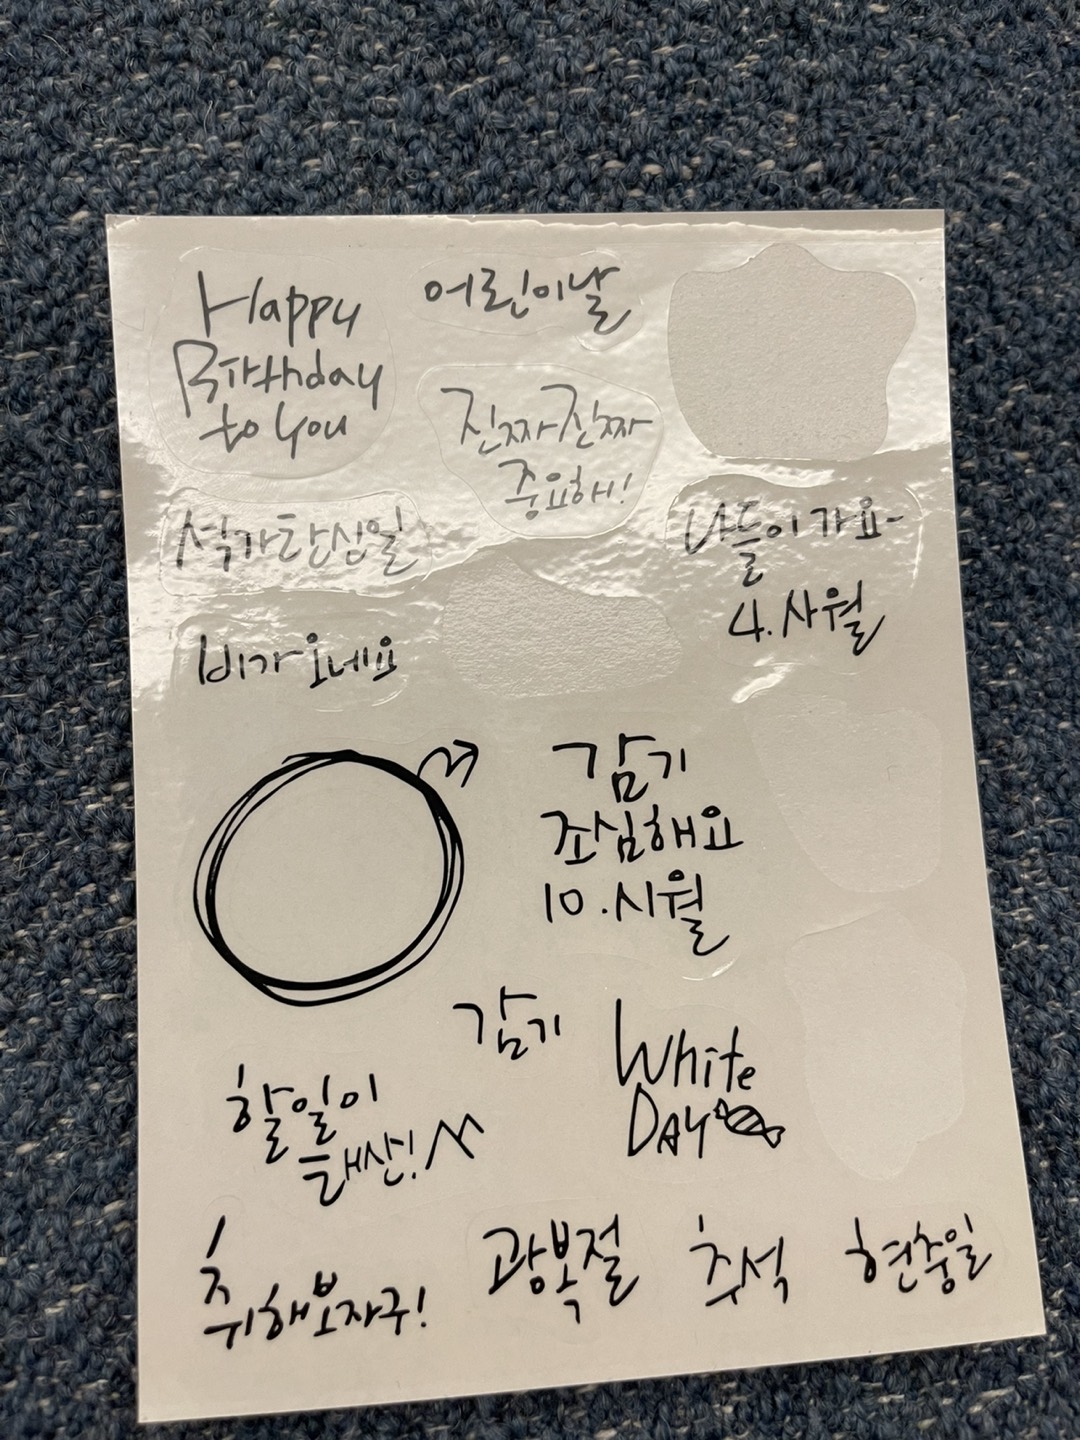 Happy
Birthday
to you
어린이날
진짜진짜
중요해!
석가탄신일
나들이가요~
4.사월
비가오네요
감기
조심해요
10.시월
감기
White
DAY
할일이
태산!
취해보자구!
광복절
추석
현충일